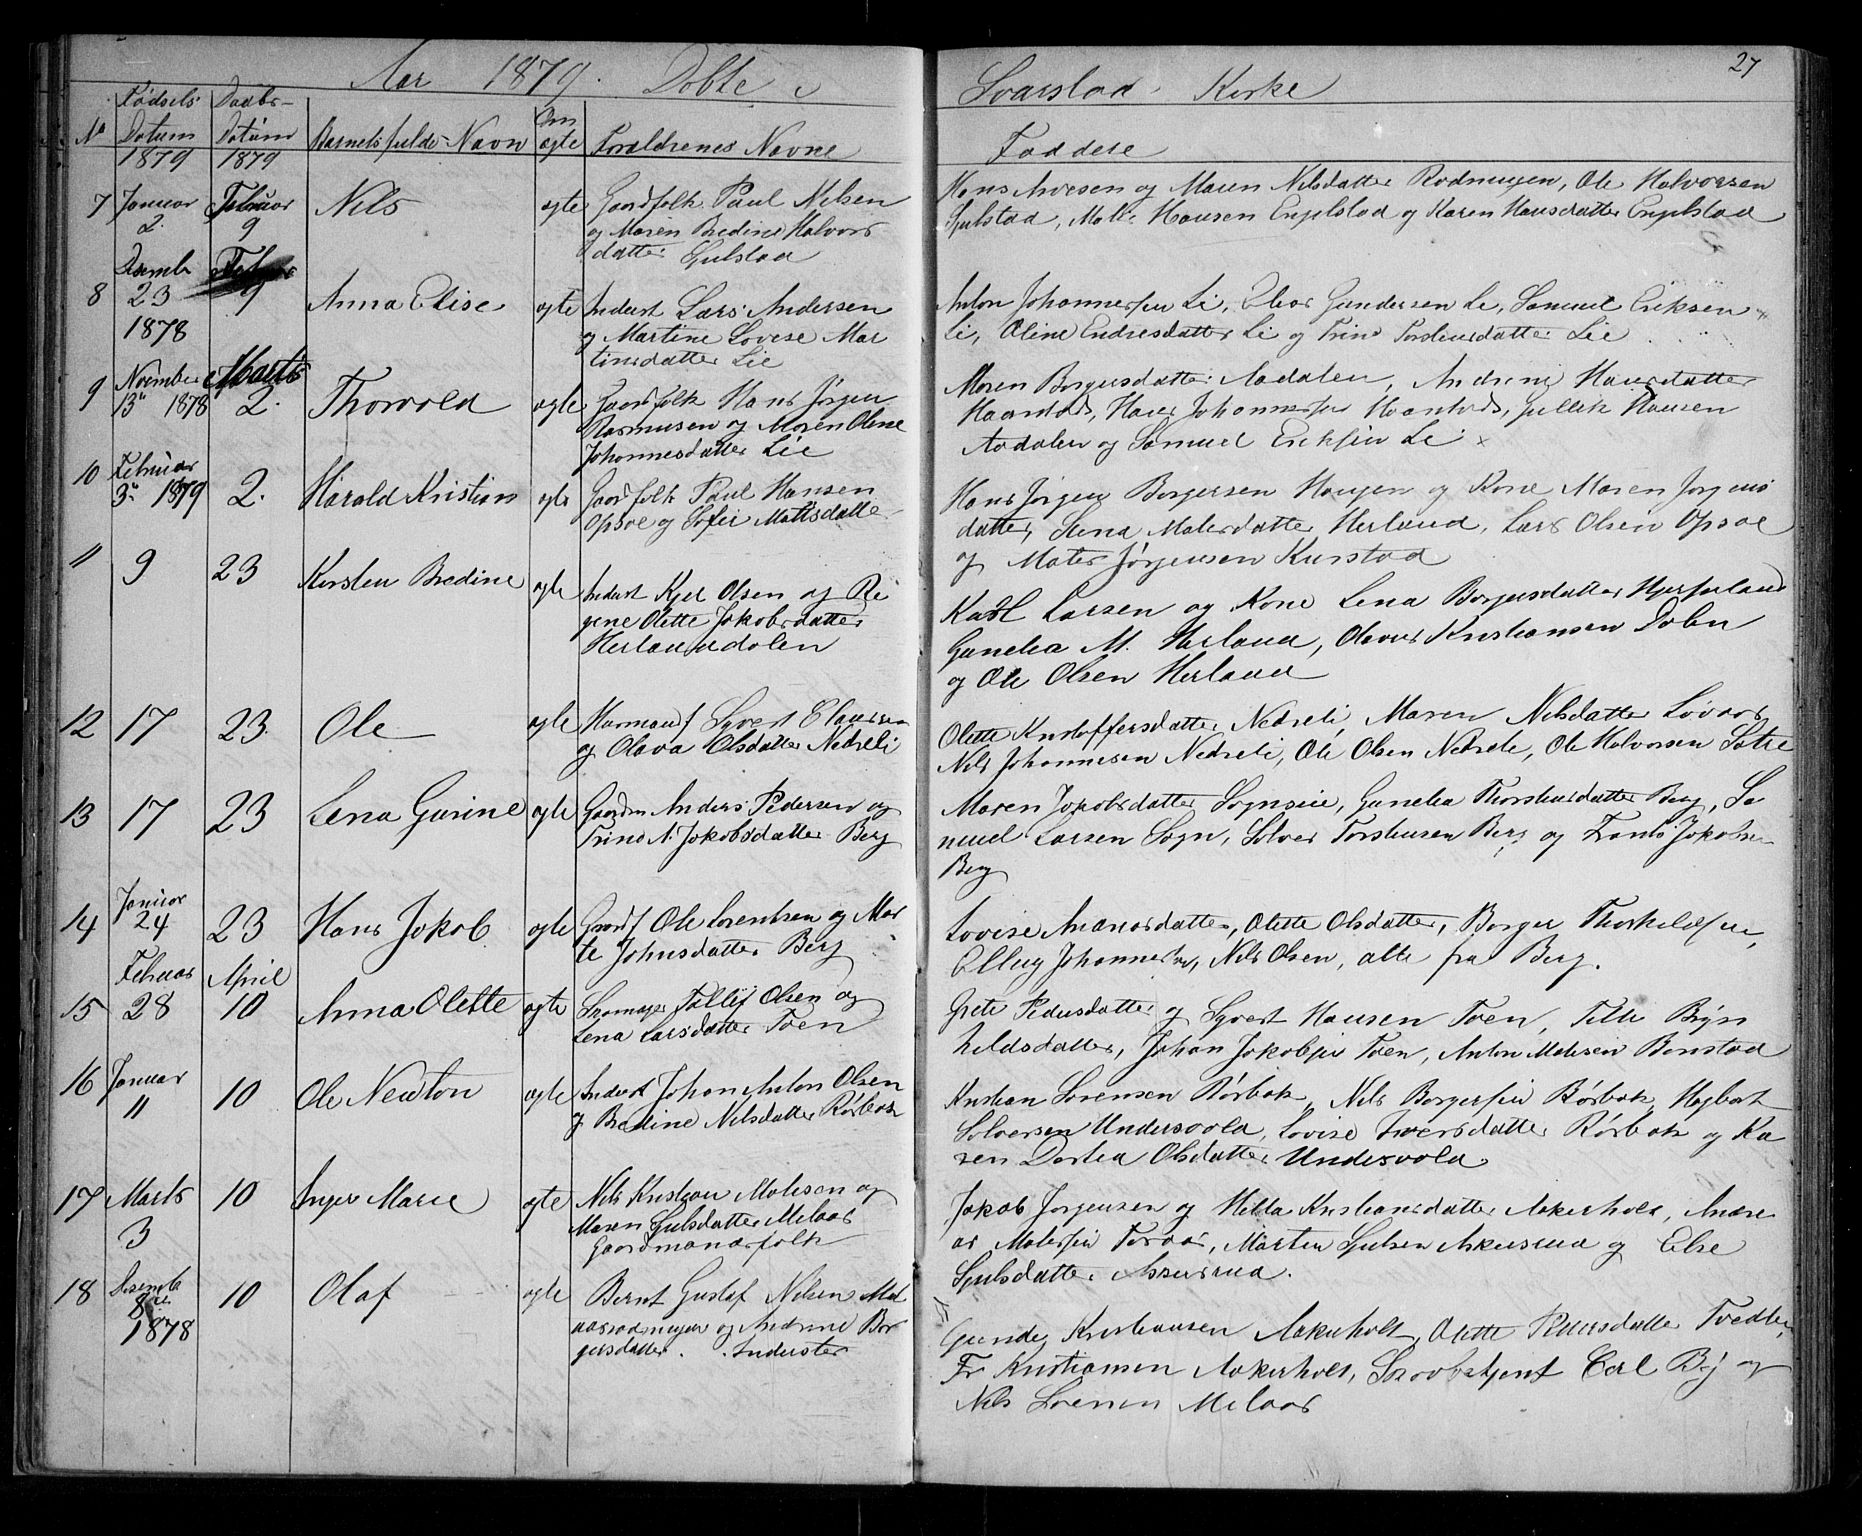 Aar 1879. Døbte i Svarstad Kirke
27
No
Fødsels Datum 1879
Daabs- Datum 1879
Barnets fulde Navn
Om ægte
Forældrenes Navne
Faddere
7 Januar 2. Februar 9 Nils ægte Gaardfolk Paul Nilsen
og Maren Bredine Halvors
datter Gulstad
Hans Iversen og Maren Nilsdatter Rødningen, Ole Halvorsen
Gulstad, Hansen Engelstad og Karen Hansdatter Engelstad
8 Desemb 23 1878 Febr 9 Anna Elise ægte Inderst Lars Andersen
og Martine Lovise Mar
tinsdatter Lie
Anton Johannessen Li, Gundersen Li, Samuel Eriksen
Li, Oline Endresdatter Li og Trine Torstensdatter Lie
9 November 13 1878 Marts 2. Thorvald ægte Gaardfolk Hans Jørgen
Rasmusen og Maren Oline
Johannesdatter Lie
Maren Borgersdatter Aadalen, Andrine Hansdatter
Haanstad, Hans Johannessen Haanstad, Gullik Hansen
Aadalen og Samuel Eriksen Li
10 Februar 3 1879 2. Harald Kristian ægte Gaardfolk Paul Hansen
Opsae og Sofie Mattsdatter
Hans Jørgen Borgersen Haugen og Kone Maren Jørgens
datter, Lena Matesdatter Herland, Lars Olsen Opsae
og Mates Jørgensen Kurstad
11 9 23 Kirsten Bredine ægte Inderst Kjel Olsen og Re
gine Olette Jakobsdatter
Herlanddalen
Karl Larsen og Kone Lena Borgersdatter
Gunelia M. Herland, Olaves Kristiansen Dalen
og Ole Olsen Herland
12 17 23. Ole ægte Husmandf Syvert Clausen
og Olava Olsdatter Nedreli
Olette Kristoffersdatter Nedreli, Maren Nilsdatter
Nils Johannesen Nedreli, Ole Olsen Nedreli, Ole Halvorsen Sætre
13 17 23 Lena Gurine ægte Gaardm Anders Pedersen og
Trine N. Jakobsdatter Berg
Maren Jakobsdatter, Gunelia Thorstensdatter Berg, Sa
muel Larsen Sogn, Solver Torstensen Berg og Frants Jakobsen
Berg
14 Januar 24 23 Hans Jakob ægte Gaardf Ole Lorentsen og Mar
te Johnsdatter Berg
Lovise datter, Olette Olsdatter, Borger Thorkildsen,
Ellug Johannesen, Nils Olsen, alle fra Berg.
15 Februar 28 April 10 Anna Olette ægte Skomager Tallef Olsen og
Lena Larsdatter Toen
Grete Pedersdatter og Syvert Hansen Toen,
hildsdatter, Johan Jakobsen Toen, Anton Matesen
16 Januar 11 10 Ole Newton ægte Inderst Johan Anton Olsen
og Bredine Nilsdatter Rørbæk
Kristian Sørensen Rørbæk, Nils Borgersen Rørbæk,
Solversen Undersvola, Lovise Iversdatter Rørbæk og Ka
ren Dortea Olsdatter Undersvola
17 Marts 3 10 Inger Marie ægte Nils Kristian Matesen og
Maren Gulsdatter Melaas
Gaardmandsfolk
Jakob Jørgensen og Hilda Kristiansdatter Askerholt, Andre
as Matessen, Martin Gulsen Askerrud og Else
Gulsdatter Askerrud.
18 Desemb 8de 1878 10 Olaf ægte Bernt Gustaf Nilsen Mel
aasrødningen og Andrine Bor
gersdatter. Inderster
Gunde Kristiansen Askerholt, Olette Pedersdatter
Fr Kristiansen Askerholt, Skovbetjent Carl Berg og
Nils Sørensen Melaas